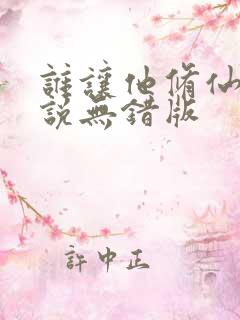 誰讓他脩仙
說無錯版
許中正